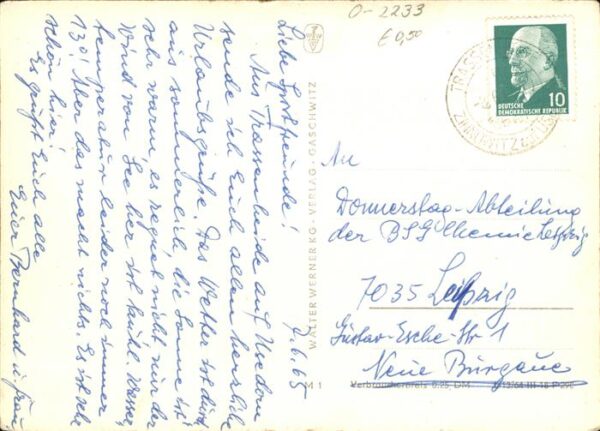 O-2233
€ 0,50
7.6.65
Liebe Sportfreunde!
Aus Trassenheide auf Usedom
sende ich Euch allen herzliche
Urlaubsgrüße. Das Wetter ist durch-
aus sommerlich, die Sonne ist
sehr warm, es regnet nicht, nur der
Wind von See her ist kühl. Wasser-
temperatur leider noch immer
13°! Aber das macht nichts. Es ist sehr
schön hier!
Es grüßt Euch alle
Euer Bernhard u. Frau
WALTER WERNER KG · VERLAG · GASCHWITZ
M 1
DEUTSCHE
DEMOKRATISCHE REPUBLIK
10
An
Donnerstag-Abteilung
der BSG Chemie Leipzig
7035 Leipzig
Gustav-Esche-Str 1
Neue Burgaue
Verbraucherpreis 0,25 DM